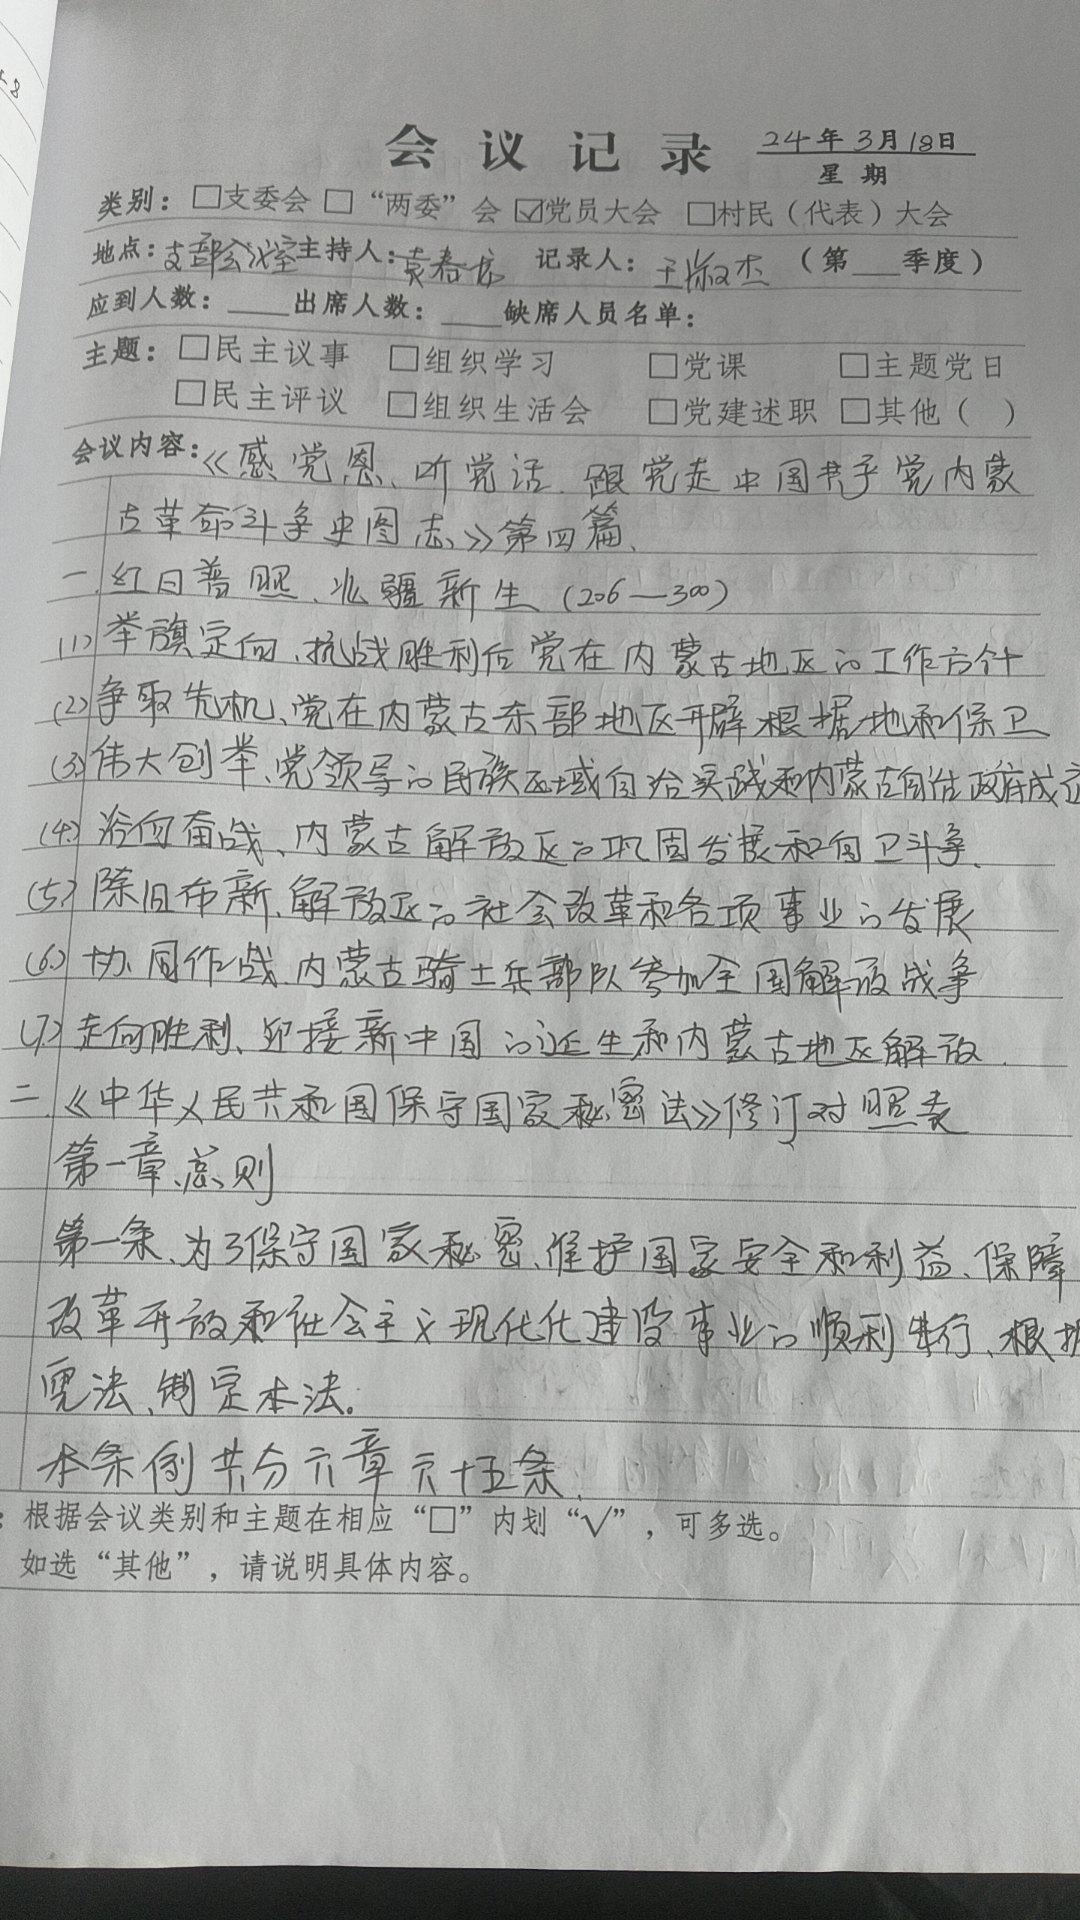 会议记录 24年3月18日
星期
类别：□支委会 □“两委”会 ☑党员大会 □村民（代表）大会
地点：支部会议室 主持人：袁春 记录人：王淑杰 （第___季度）
应到人数：____出席人数：____缺席人员名单：
主题：□民主议事 □组织学习 □党课 □主题党日
□民主评议 □组织生活会 □党建述职 □其他（ ）
会议内容：《感党恩、听党话、跟党走中国共产党内蒙
古革命斗争史图志》第四篇、
一、红日普照、北疆新生（206—300）
(1)举旗定向、抗战胜利后党在内蒙古地区的工作方针
(2)争取先机、党在内蒙古东部地区开辟根据地和保卫
(3)伟大创举、党领导的民族区域自治实践和内蒙古自治政府成立
(4)浴血奋战、内蒙古解放区的巩固发展和自卫斗争、
(5)除旧布新、解放区的社会改革和各项事业的发展
(6)协同作战、内蒙古骑士兵部队参加全国解放战争
(7)走向胜利、迎接新中国的诞生和内蒙古地区解放、
二、《中华人民共和国保守国家秘密法》修订对照表
第一章、总则
第一条、为了保守国家秘密、维护国家安全和利益、保障
改革开放和社会主义现代化建设事业的顺利进行、根据
宪法、制定本法。
本条例共分六章六十五条、
：根据会议类别和主题在相应“□”内划“√”，可多选。
如选“其他”，请说明具体内容。